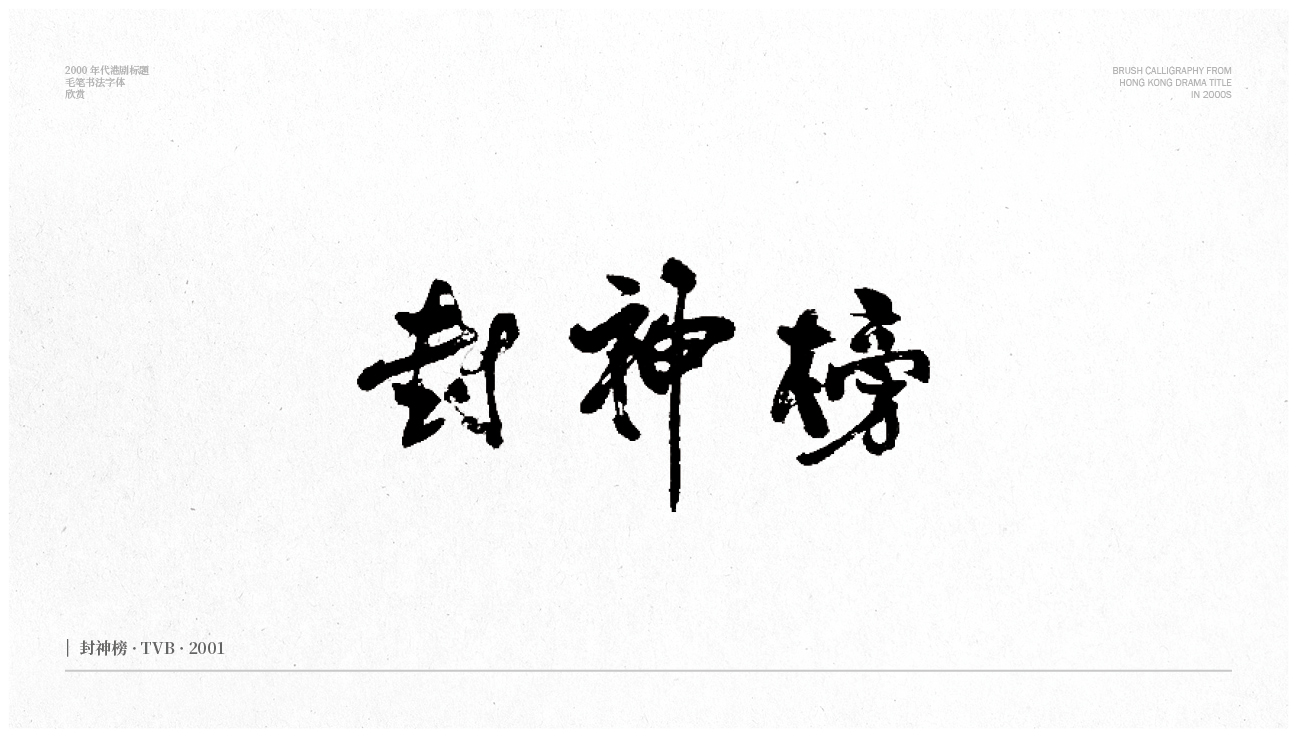 2000 年代港剧标题
毛笔书法字体
欣赏
BRUSH CALLIGRAPHY FROM
HONG KONG DRAMA TITLE
IN 2000S
封神榜
封神榜 · TVB · 2001